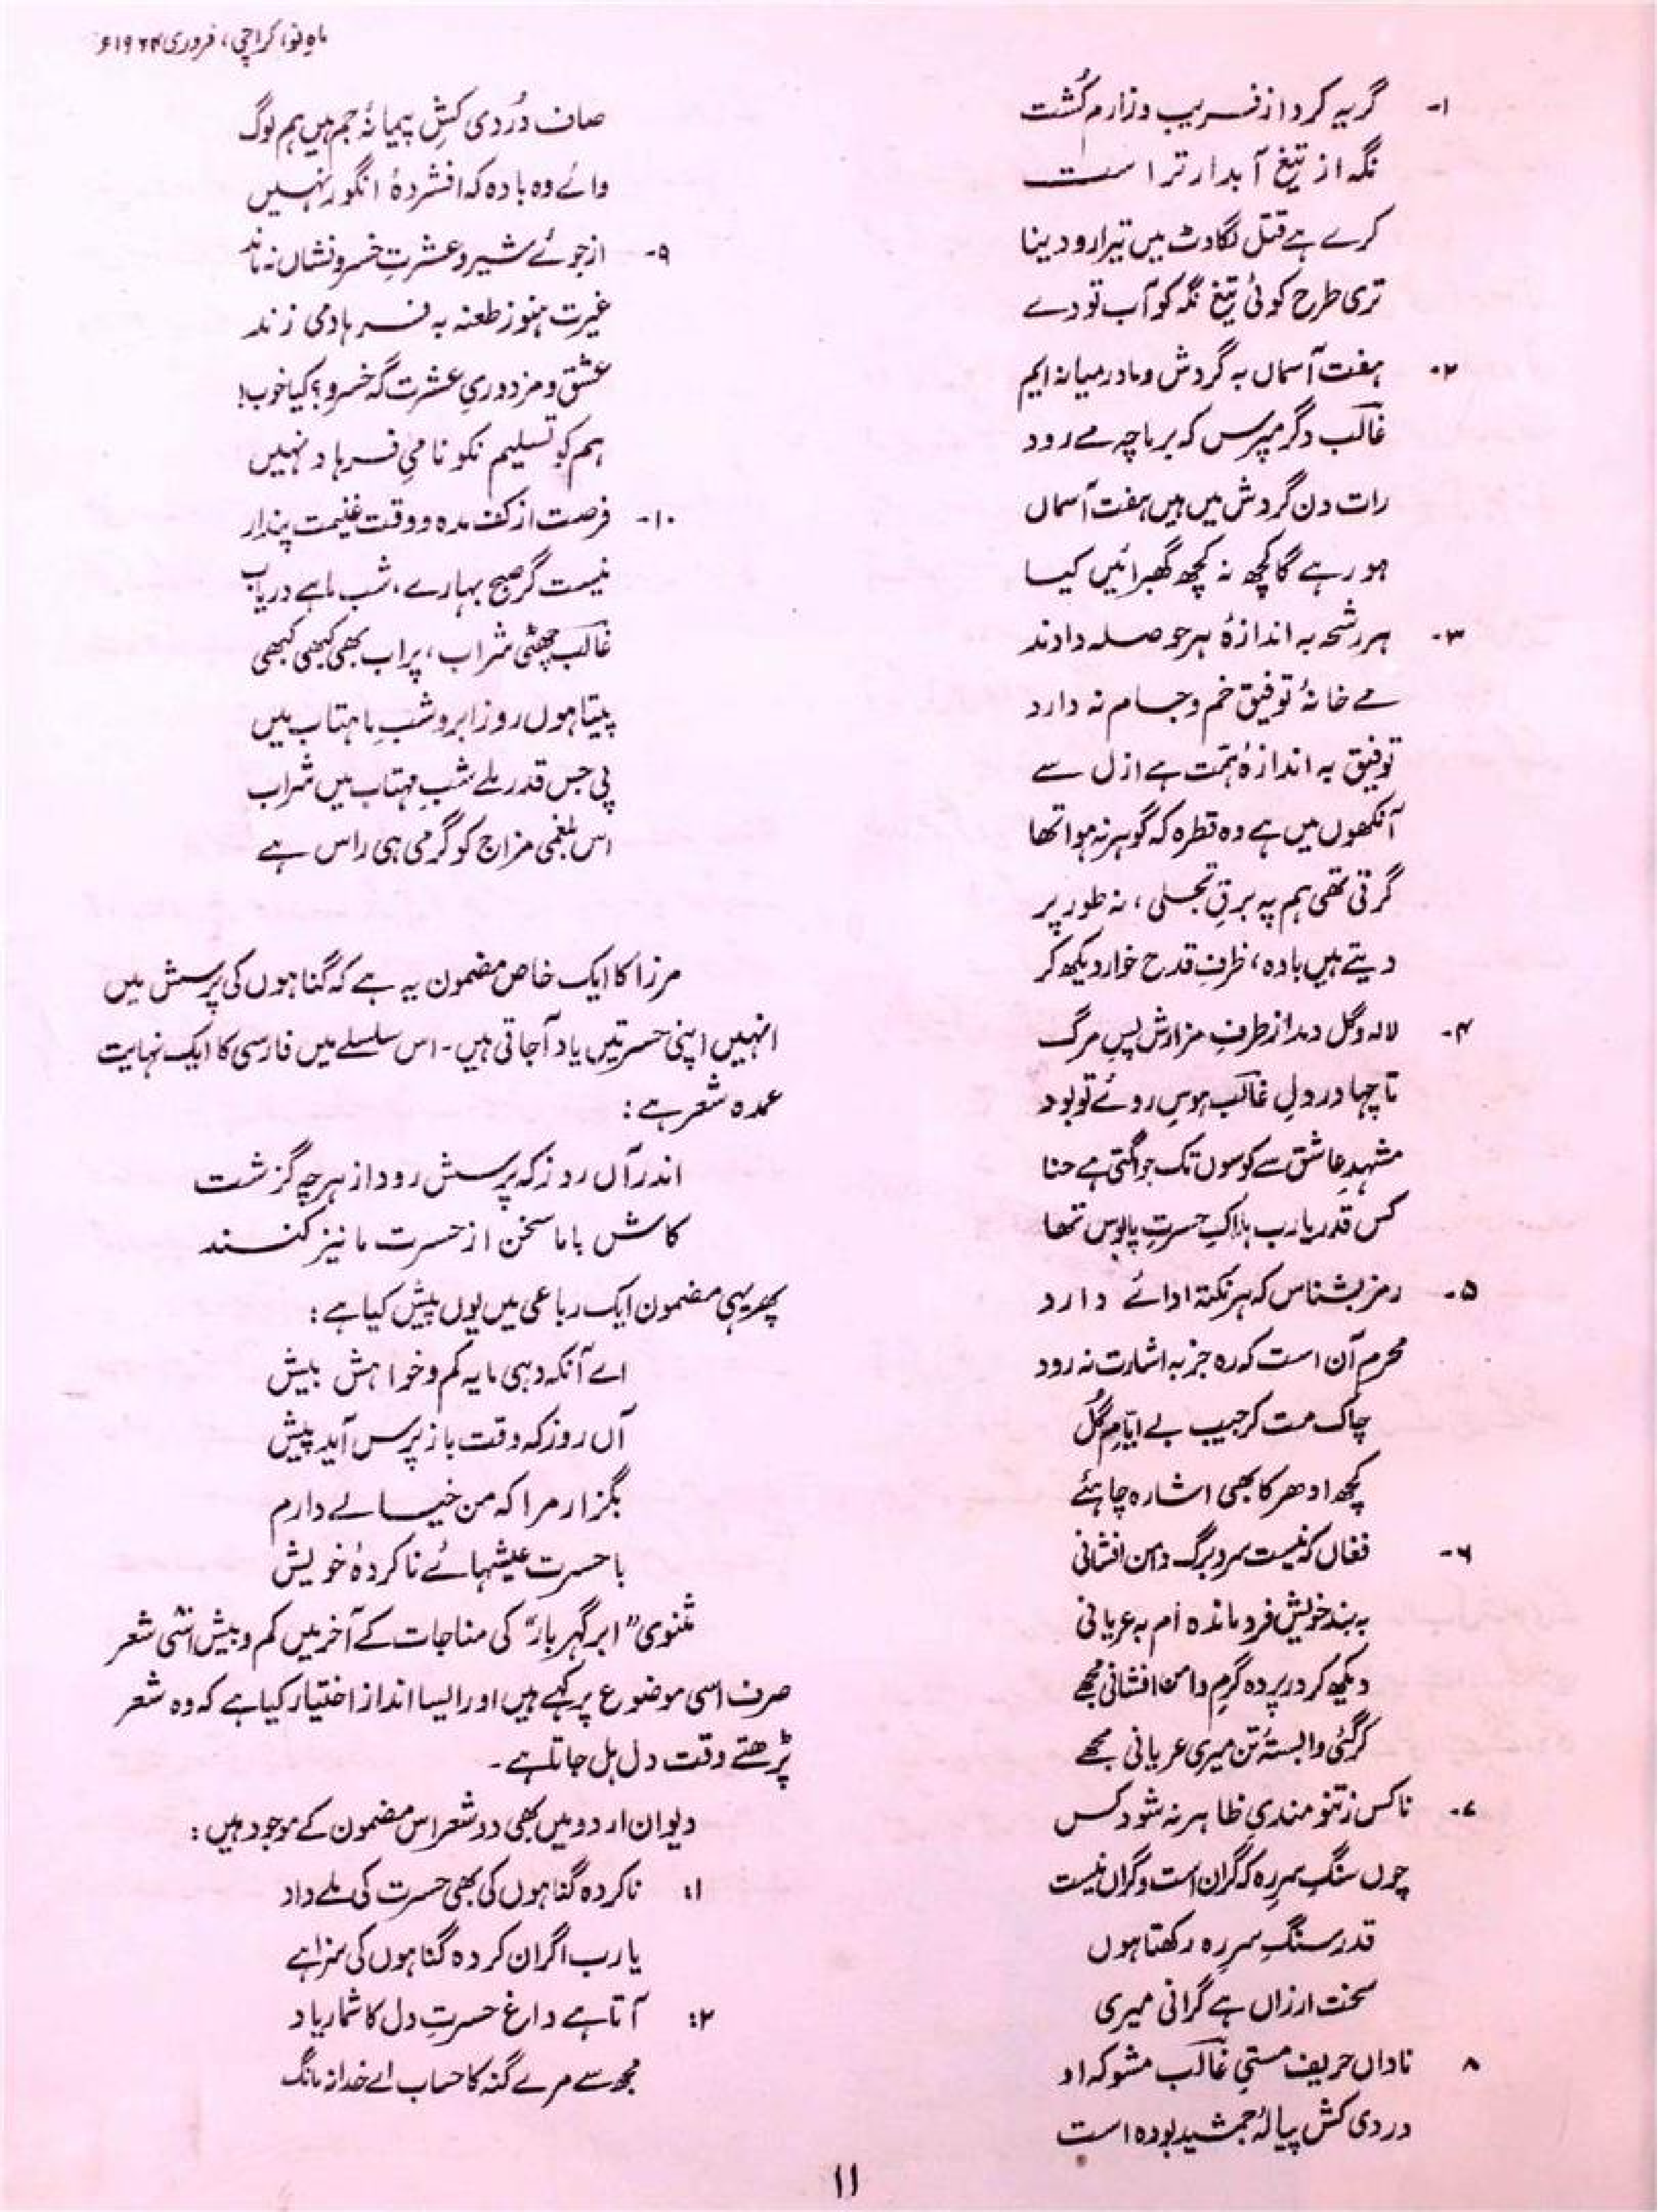 ماہِ نو، کراچی، فروری ۱۹۶۴ء
۱- گریہ کرد از فریب و زارم کُشت
نگہ از تیغ آبدار تر است
کرے ہے قتل لگاوٹ میں تیرا رو دینا
تری طرح کوئی تیغِ نگہ کو آب تو دے
۲- ہفت آسماں بہ گردش و ما درمیانہ ایم
غالب دگر مپرس کہ بر ما چہ مے رود
رات دن گردش میں ہیں ہفت آسماں
ہو رہے گا کچھ نہ کچھ گھبرائیں کیا
۳- ہر رشحہ بہ اندازۂ ہر حوصلہ دادند
مے خانۂ توفیق خم و جام نہ دارد
توفیق بہ اندازۂ ہمّت ہے ازل سے
آنکھوں میں ہے وہ قطرہ کہ گوہر نہ ہوا تھا
گرتی تھی ہم پہ برقِ تجلی، نہ طور پر
دیتے ہیں بادہ، ظرفِ قدح خوار دیکھ کر
۴- لالہ و گل دمد از طرفِ مزارش پسِ مرگ
تا چہا در دلِ غالب ہوسِ روئے تو بود
مشہدِ عاشق سے کوسوں تک جو اگتی ہے حنا
کس قدر یارب ہلاکِ حسرتِ پابوس تھا
۵- رمز بشناس کہ ہر نکتہ ادائے دارد
محرم آن است کہ رہ جز بہ اشارت نہ رود
چاک مت کر جیب بے ایّامِ گُل
کچھ ادھر کا بھی اشارہ چاہئے
۶- فغاں کہ نیست سر و برگ دامن افشانی
بہ بند خویش فرو ماندہ ام بہ عریانی
دیکھ کر در پردہ گرمِ دامن افشانی مجھے
کر گئی وابستۂ تن میری عریانی مجھے
۷- ناکس ز تنو مندیِ ظاہر نہ شود کس
چوں سنگِ سرِ رہ کہ گران است و گراں نیست
قدر سنگِ سرِ رہ رکھتا ہوں
سخت ارزاں ہے گرانی میری
۸ ناداں حریف مستیِ غالب مشو کہ او
دردی کش پیالۂ جمشید بودہ است
صاف دُردی کشِ پیمانۂ جم ہیں ہم لوگ
وائے وہ بادہ کہ افشردۂ انگور نہیں
۹- از جوئے شیر و عشرتِ خسرو نشاں نہ ماند
غیرت ہنوز طعنہ بہ فرہاد می زند
عشق و مزدوریِ عشرت گہ خسرو؟ کیا خوب!
ہم کو تسلیم نکو نامیِ فرہاد نہیں
۱۰- فرصت از کف مدہ و وقت غنیمت پندار
نیست گر صبح بہارے، شب ماہے دریاب
غالب چھٹی شراب، پر اب بھی کبھی کبھی
پیتا ہوں روز ابر و شبِ ماہتاب میں
پی جس قدر ملے شبِ مہتاب میں شراب
اس بلغمی مزاج کو گرمی ہی راس ہے
مرزا کا ایک خاص مضمون یہ ہے کہ گناہوں کی پرسش میں
انہیں اپنی حسرتیں یاد آ جاتی ہیں۔ اس سلسلے میں فارسی کا ایک نہایت
عمدہ شعر ہے:
اندر آں روز کہ پرسش رود از ہر چہ گزشت
کاش با ما سخن از حسرت ما نیز کنند
پھر یہی مضمون ایک رباعی میں یوں پیش کیا ہے:
اے آنکہ دہی مایہ کم و خواہش بیش
آں روز کہ وقت باز پرس آید پیش
بگزار مرا کہ من خیالے دارم
با حسرت عیشہائے ناکردۂ خویش
مثنوی "ابر گہر بار" کی مناجات کے آخر میں کم و بیش اسّی شعر
صرف اسی موضوع پر کہے ہیں اور ایسا انداز اختیار کیا ہے کہ وہ شعر
پڑھتے وقت دل ہل جاتا ہے۔
دیوان اردو میں بھی دو شعر اس مضمون کے موجود ہیں:
۱: ناکردہ گناہوں کی بھی حسرت کی ملے داد
یا رب اگر ان کردہ گناہوں کی سزا ہے
۲: آتا ہے داغ حسرتِ دل کا شمار یاد
مجھ سے مرے گنہ کا حساب اے خدا نہ مانگ
۱۱